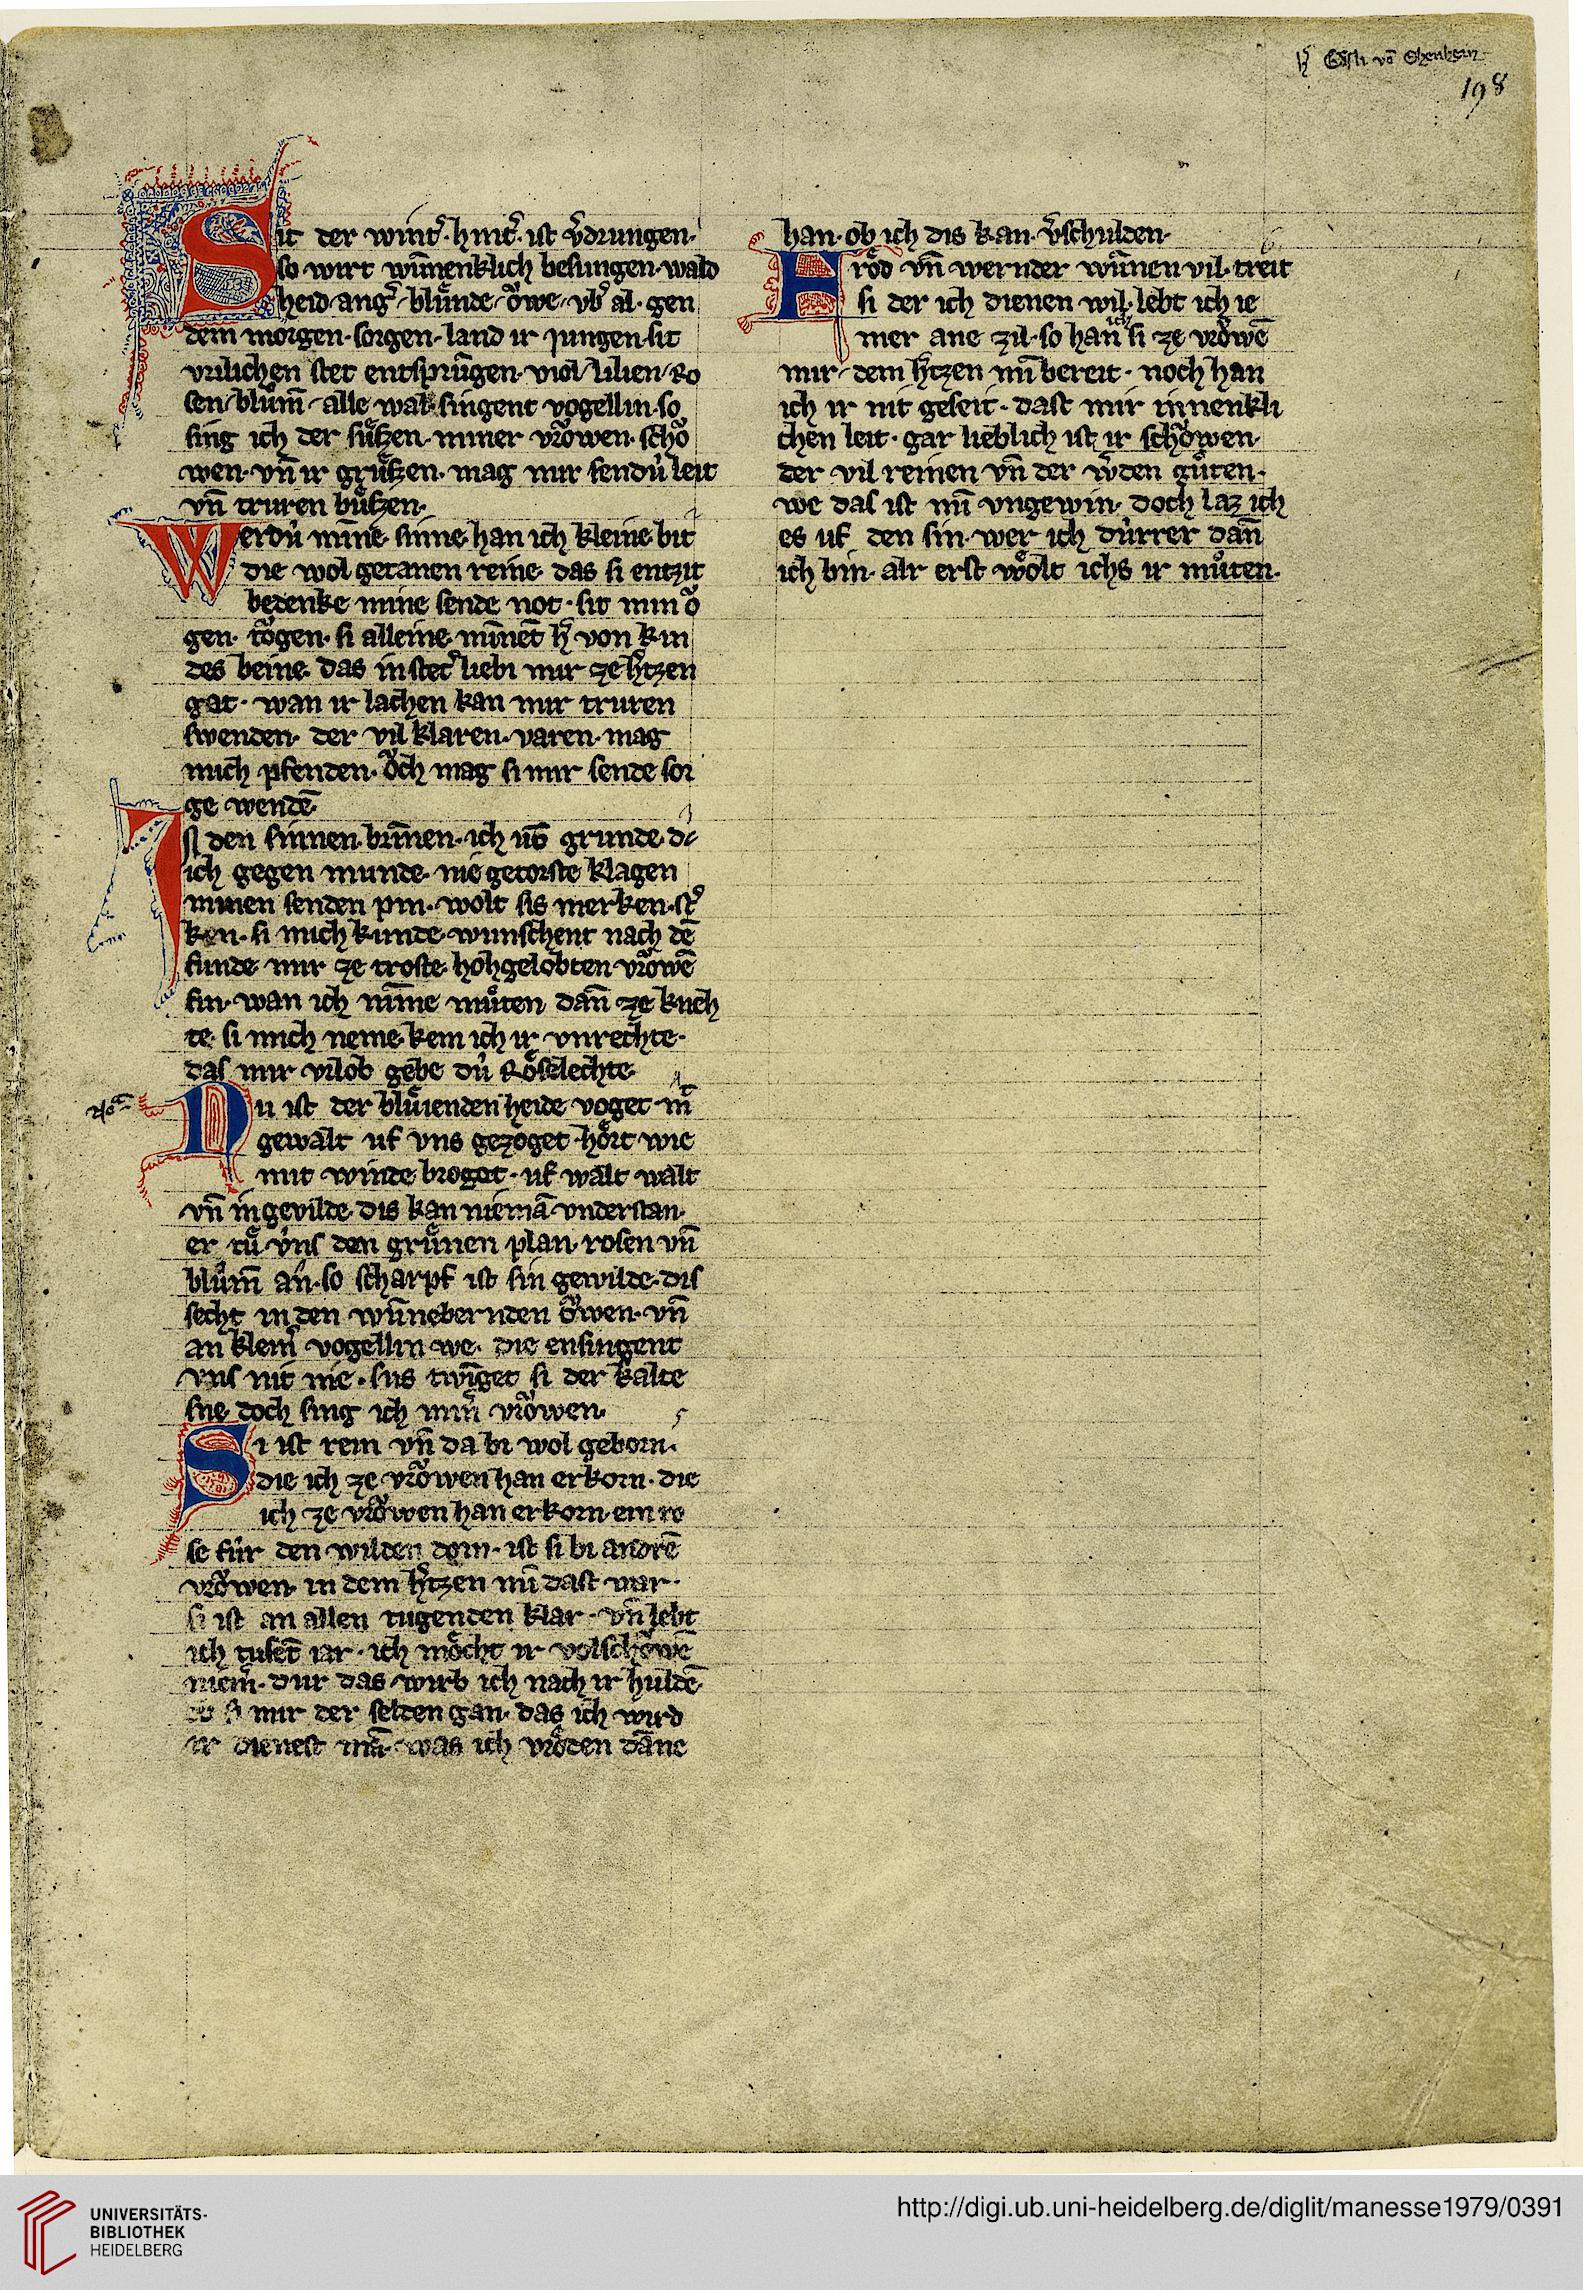 H̓ Gösli vō Ehenhein
198
Sit der wint̾. hint̾. ist v̾drungen.
so wirt wūnenklich besungen. wald
heid ang̾ blůnde ǒwe vb̾ al. gen
dem morgen. sorgen. land ir jungen. sit
vrilichen stet entsprūgen. viol lilien Ro
sen blům̄ alle wal. singent vogellin. so
sing ich der sůszen. miner vrǒwen. schǒ
wen. vn̄ ir grůszen. mag mir sendú leit
vn̄ truren bůszen.
Werdú min̄e sinne han ich kleine bit
die wol getanen reine. das si entzit
bedenke mine sende not. sit min ǒ
gen. tǒgen. si alleine minnet h̾ von kin
des beine. das in stet̾ liebi mir ze h̾tzen
gat. wan ir lachen kan mir truren
swenden. der vil klaren. varen. mag
mich pfenden. ǒch mag si mir sende sor
ge wendē
IN den sinnen brin̄en. ich vō grunde. d
ich gegen munde. nie getorste klagen
minen senden pin. wolt sis merken. st̾
ken. si mich kunde. wunschent nach dē
funde mir ze troste. hohgelobten vrǒwē
sin. wan ich nim̄e můten dan̄ ze kneh
te. si mich neme. kem ich ir vnrechte.
das mir vrlob gebe dú Rǒselechte.
Nu ist der blůienden heide voget. mit
gewalt uf vns gezoget. hǒrt wie
mit winde broget. uf walt walt
vn̄ in gevilde. dis kan niemā understan.
er tů v́ns den grůnen plan. rosen vn̄
blům̄ an. so scharpf ist sin gewilde. dis
secht in den wūnebernden ǒwen. vn̄
an klein̾ vogellin we. die ensingent
vns nit me. sus twīget si der kalte
sne. doch sing ich min̾ vrǒwen.
Si ist rein vn̄ da bi wol geborn.
die ich ze vrǒwen han erkorn. die
ich ze vrǒwen han erkorn. ein ro
se fúr den wilden dorn. ist si bi andrē
vrǒwen. in dem h̾tzen mī dast war.
si ist an allen tugenden klar. vn̄ lebt
ich tusēt iar. ich mǒcht ir volschǒwē
niem̾. dur das wirb ich nach ir huldē.
mir der selden gan. das ich wird
ir dienest mā. was ich vrǒden dāne
han. ob ich dis kan. v̾schulden.
Frǒd vn̄ wernder wūnen vil. treit
si der ich dienen wil. lebt ich ie
mer ane zil. so han ich si ze vrǒwē
mir. dem h̾tzen mī bereit. noch han
ich ir nit geseit. dast mir innenkli
chen leit. gar lieblich ist ir schǒwen.
der vil reinen vn̄ der w̾den gůten.
we das ist mī vngewin. doch laz ich
es uf den sin. wer ich dúrrer dan̄
ich bin. alr erst wǒlt ichs ir můten.
UNIVERSITÄTS-
BIBLIOTHEK
HEIDELBERG
http://digi.ub.uni-heidelberg.de/diglit/manesse1979/0391